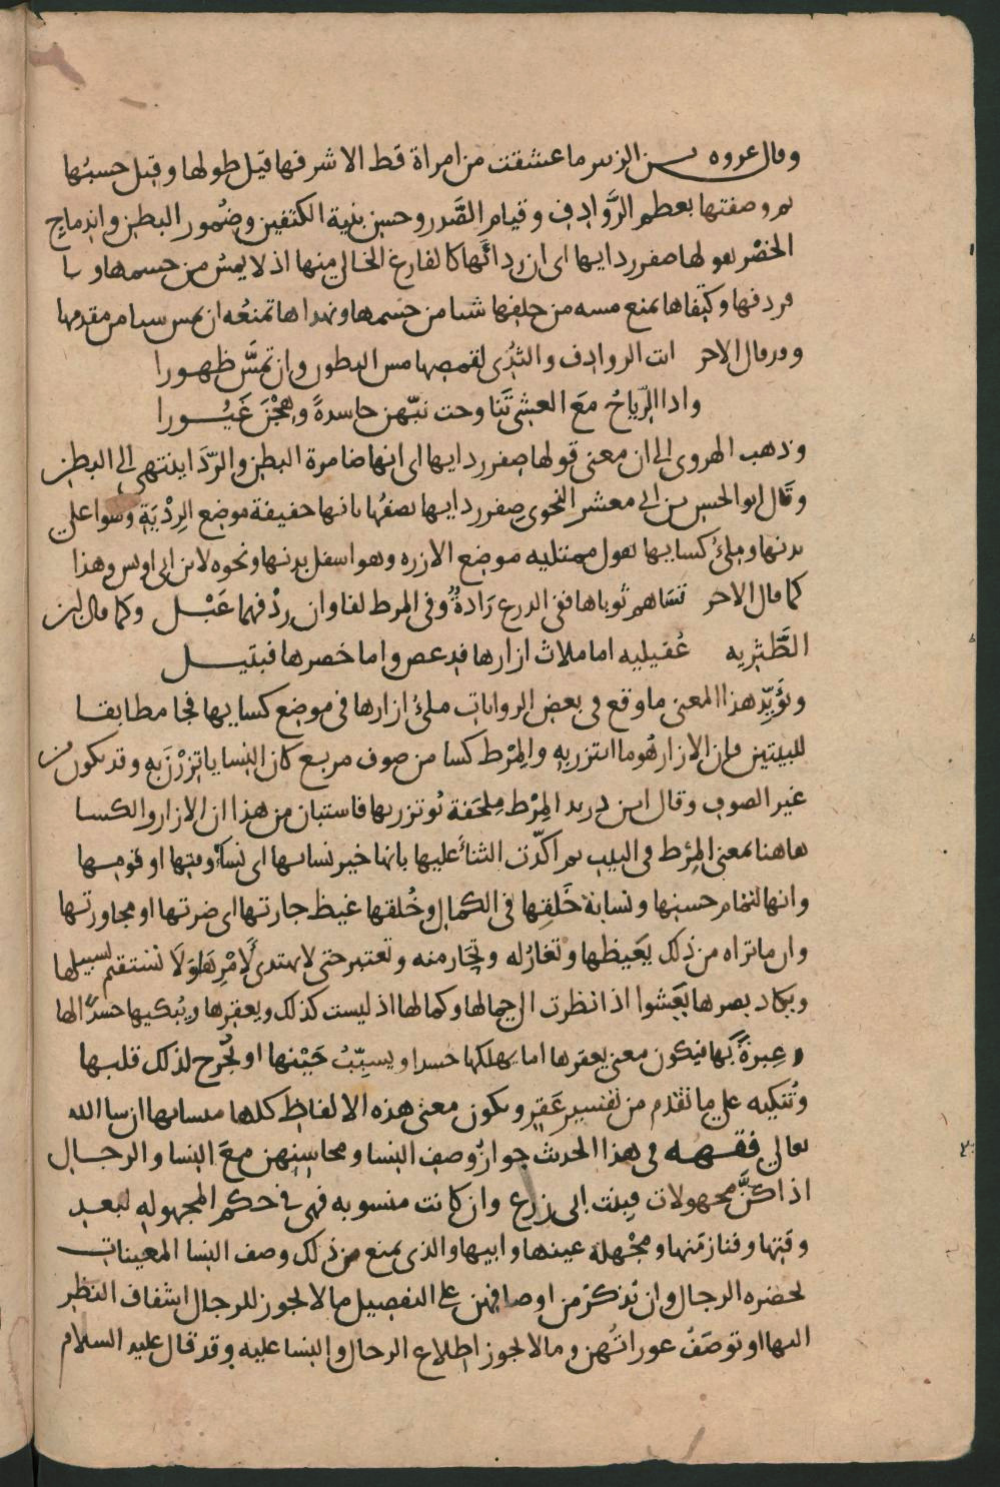 وقال عروه بن الزبير ما عشقت من امراة قط الا شرفها قيل طولها وقيل حسبُها
ثم وصفتها بعظم الرَّوادف وقيام الصَّدر وحسن بنية الكتفين وضُمور البطن واندماج
الخصْر بقولها صفر ردايها اى ان رداَئها كالفارغ الخالى منها اذ لا يمسّ من جسمها
فردفها وكتفاها تمنع مسه من خلفها شيا من جسمها ونهداها تمنعُه ان يمس شيا من مقدمها
وقد قال الاخر ابت الروادف والثدِىُّ لقمصها مس البطون وان تمسَّ ظهورا
واذا الرّياحُ مَعَ العشىّ تَنَاوحت نبّهن حاسدةً وهِجْنَ غَيُورا
وذهب الهروى الى ان معنى قولها صفر ردايها اى انها ضامرة البطن والرّدَا ينتهى الى البطن
وقال ابو الحسن بن ابى معشر النحوى صفر ردايها تصفُها بانها خفيفة موضع الرِدْيَةِ وهوا على
بدنها وملئ كسايها تقول ممتليه موضع الازره وهو اسفل بدنها ونحوه لابن ابى اويس وهذا
كما قال الاخر تسَاهم ثوباها ففى الدرع رَادةٌ وفى المرط لفاوان ردْفهما عَبْل وكما قال ابن
الطَّثْريه عُقيليه اما ملاث ازارها فدعص واما خصرها فبتيل
ويُؤَيّد هذا المعنى ما وقع فى بعض الروايات ملئ ازارها فى موضع كسايها فجا مطابقا
للبيتين فان الازار هُو ما ائتزر به والمِرْط كسا من صوف مربع كان النسا ياتزرْنَ به وقد يكون من
غير الصوف وقال ابن دريد المِرْط مِلحَفة يُوتزر بها فاستبان من هذا ان الازار والكسا
هاهنا بمعنى المِرْط فى البيت ثم اكدّت الثنآَ عليها بانها خير نسائها اى نسآء بيتها او قومها
وانها لتمام حسنها ونسابة خَلقها فى الكمال وخُلقها غيظ جارتها اى ضرتها او مجاورتها
وان ما تراه من ذلك يَغيظها وتغارُ له وتحَار منه وتعتبر حتى لا يهتدى لأمْرِهَا وَلا تستقم لسبيلها
ويكاد بصرها يَعْشوا اذا نظرت الى جمالها وكمالها اذ ليست كذلك ويعقرها ويُبكيها حسدًا لها
وعِبرةً بها فيكون معنى يعقرها اما يهلكها حسدا ويسبّبُ حَيْنها او يُجرح لذلك قلبها
وتُبكيه على ما تقدم من تفسير عَقرٍ ويكون معنى هذه الالفاظ كلها ان شا الله
تعالى فقهه فى هذا الحديث جوازُ وصف النسا ومحاسنهن معَ النسا والرجال
اذا كُنَّ مجهولات فبنت ابى زرع وان كانت منسوبه فهى فى حكم المجهوله لبعد
وقتها وفنا زمنها ومجْهلة عينها وابيها والذى يمنع من ذلك وصف النسا المعينات
لحضره الرجال وان يُذكرَ من اوصافهن على التفصيل ما لا يجوز للرجال اشفاف النظر
اليها او توصَفُ عوراتُهن وما لا يجوز اطلاع الرجال والنسا عليه وقد قال عليه السلام